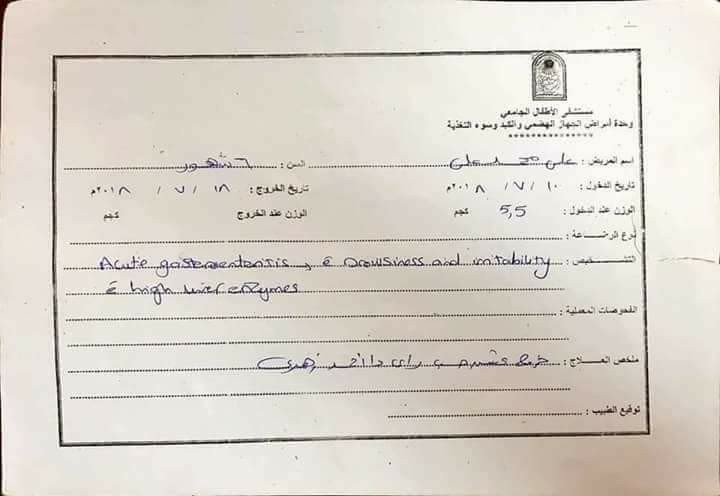 مستشفى الأطفال الجامعي
وحدة أمراض الجهاز الهضمي والكبد وسوء التغذية
اسم المريض : على محمد على السن : ٦ شهور
تاريخ الدخول : ١٠ / ٧ / ٢٠١٨م تاريخ الخروج : ١٨ / ٧ / ٢٠١٨م
الوزن عند الدخول : 5,5 كجم الوزن عند الخروج كجم
نوع الرضاعة :
التشخيص : Acute gastroenteritis, c̄ Drowsiness and irritability
c̄ high liver enzymes
الفحوصات المعملية :
ملخص العلاج : خرج حسب راى د/ احمد
توقيع الطبيب :